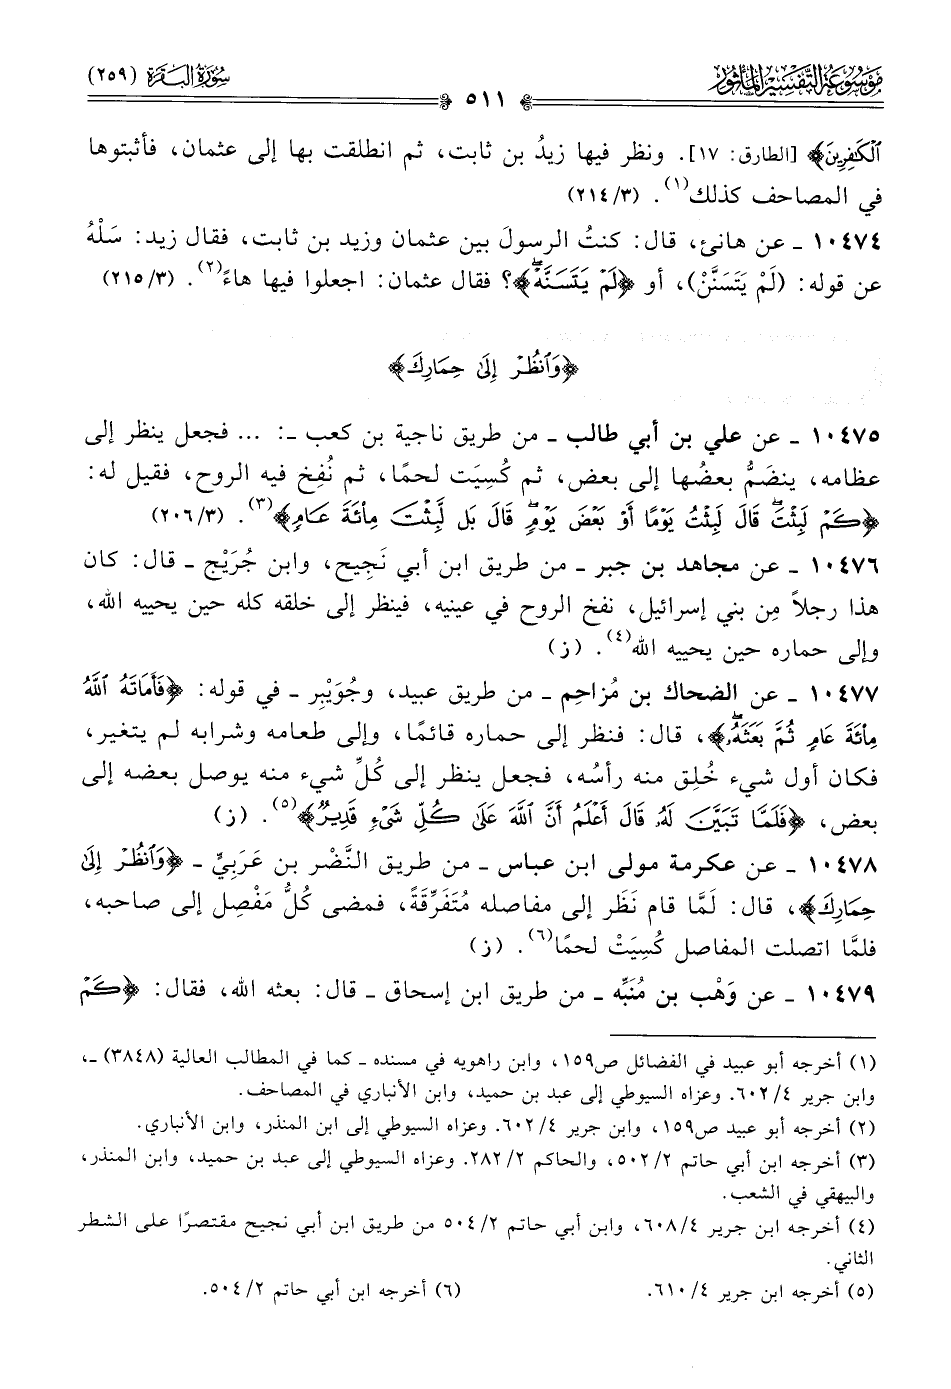 مَوْسُوعَةُ التَّفْسِيرِ المَأْثُورِ
٥١١
سُورَةُ البَقَرَةِ (٢٥٩)
ٱلْكَٰفِرِينَ﴾ [الطارق: ١٧]. ونظر فيها زيدُ بن ثابت، ثم انطلقت بها إلى عثمان، فأثبتوها
في المصاحف كذلك(١). (٣/ ٢١٤)
١٠٤٧٤ ـ عن هانئ، قال: كنتُ الرسولَ بين عثمان وزيد بن ثابت، فقال زيد: سَلْهُ
عن قوله: (لَمْ يَتَسَنَّنْ)، أو ﴿لَمْ يَتَسَنَّهْۖ﴾؟ فقال عثمان: اجعلوا فيها هاءً(٢). (٣/ ٢١٥)
﴿وَٱنظُرْ إِلَىٰ حِمَارِكَ﴾
١٠٤٧٥ ـ عن علي بن أبي طالب ـ من طريق ناجية بن كعب ـ: ... فجعل ينظر إلى
عظامه، ينضَمُّ بعضُها إلى بعض، ثم كُسِيَت لحمًا، ثم نُفِخ فيه الروح، فقيل له:
﴿كَمْ لَبِثْتَۖ قَالَ لَبِثْتُ يَوْمًا أَوْ بَعْضَ يَوْمٍۖ قَالَ بَل لَّبِثْتَ مِا۟ئَةَ عَامٍ﴾(٣). (٣/ ٢٠٦)
١٠٤٧٦ ـ عن مجاهد بن جبر ـ من طريق ابن أبي نَجِيح، وابن جُرَيْج ـ قال: كان
هذا رجلاً مِن بني إسرائيل، نفخ الروح في عينيه، فينظر إلى خلقه كله حين يحييه الله،
وإلى حماره حين يحييه الله(٤). (ز)
١٠٤٧٧ ـ عن الضحاك بن مُزاحِم ـ من طريق عبيد، وجُوَيْبِر ـ في قوله: ﴿فَأَمَاتَهُ ٱللَّهُ
مِا۟ئَةَ عَامٍ ثُمَّ بَعَثَهُۥۖ﴾، قال: فنظر إلى حماره قائمًا، وإلى طعامه وشرابه لم يتغير،
فكان أول شيء خُلِق منه رأسُه، فجعل ينظر إلى كُلِّ شيء منه يوصل بعضه إلى
بعض، ﴿فَلَمَّا تَبَيَّنَ لَهُۥ قَالَ أَعْلَمُ أَنَّ ٱللَّهَ عَلَىٰ كُلِّ شَىْءٍ قَدِيرٌ﴾(٥). (ز)
١٠٤٧٨ ـ عن عكرمة مولى ابن عباس ـ من طريق النَّضْر بن عَرَبِيٍّ ـ ﴿وَٱنظُرْ إِلَىٰ
حِمَارِكَ﴾، قال: لَمَّا قام نَظَر إلى مفاصله مُتَفَرِّقَةً، فمضى كُلُّ مَفْصِل إلى صاحبه،
فلمَّا اتصلت المفاصل كُسِيَتْ لحمًا(٦). (ز)
١٠٤٧٩ ـ عن وَهْب بن مُنَبِّه ـ من طريق ابن إسحاق ـ قال: بعثه الله، فقال: ﴿كَمْ
(١) أخرجه أبو عبيد في الفضائل ص١٥٩، وابن راهويه في مسنده ـ كما في المطالب العالية (٣٨٤٨) ـ،
وابن جرير ٤/ ٦٠٢. وعزاه السيوطي إلى عبد بن حميد، وابن الأنباري في المصاحف.
(٢) أخرجه أبو عبيد ص١٥٩، وابن جرير ٤/ ٦٠٢. وعزاه السيوطي إلى ابن المنذر، وابن الأنباري.
(٣) أخرجه ابن أبي حاتم ٢/ ٥٠٢، والحاكم ٢/ ٢٨٢. وعزاه السيوطي إلى عبد بن حميد، وابن المنذر،
والبيهقي في الشعب.
(٤) أخرجه ابن جرير ٤/ ٦٠٨، وابن أبي حاتم ٢/ ٥٠٤ من طريق ابن أبي نجيح مقتصرًا على الشطر
الثاني.
(٥) أخرجه ابن جرير ٤/ ٦١٠.
(٦) أخرجه ابن أبي حاتم ٢/ ٥٠٤.